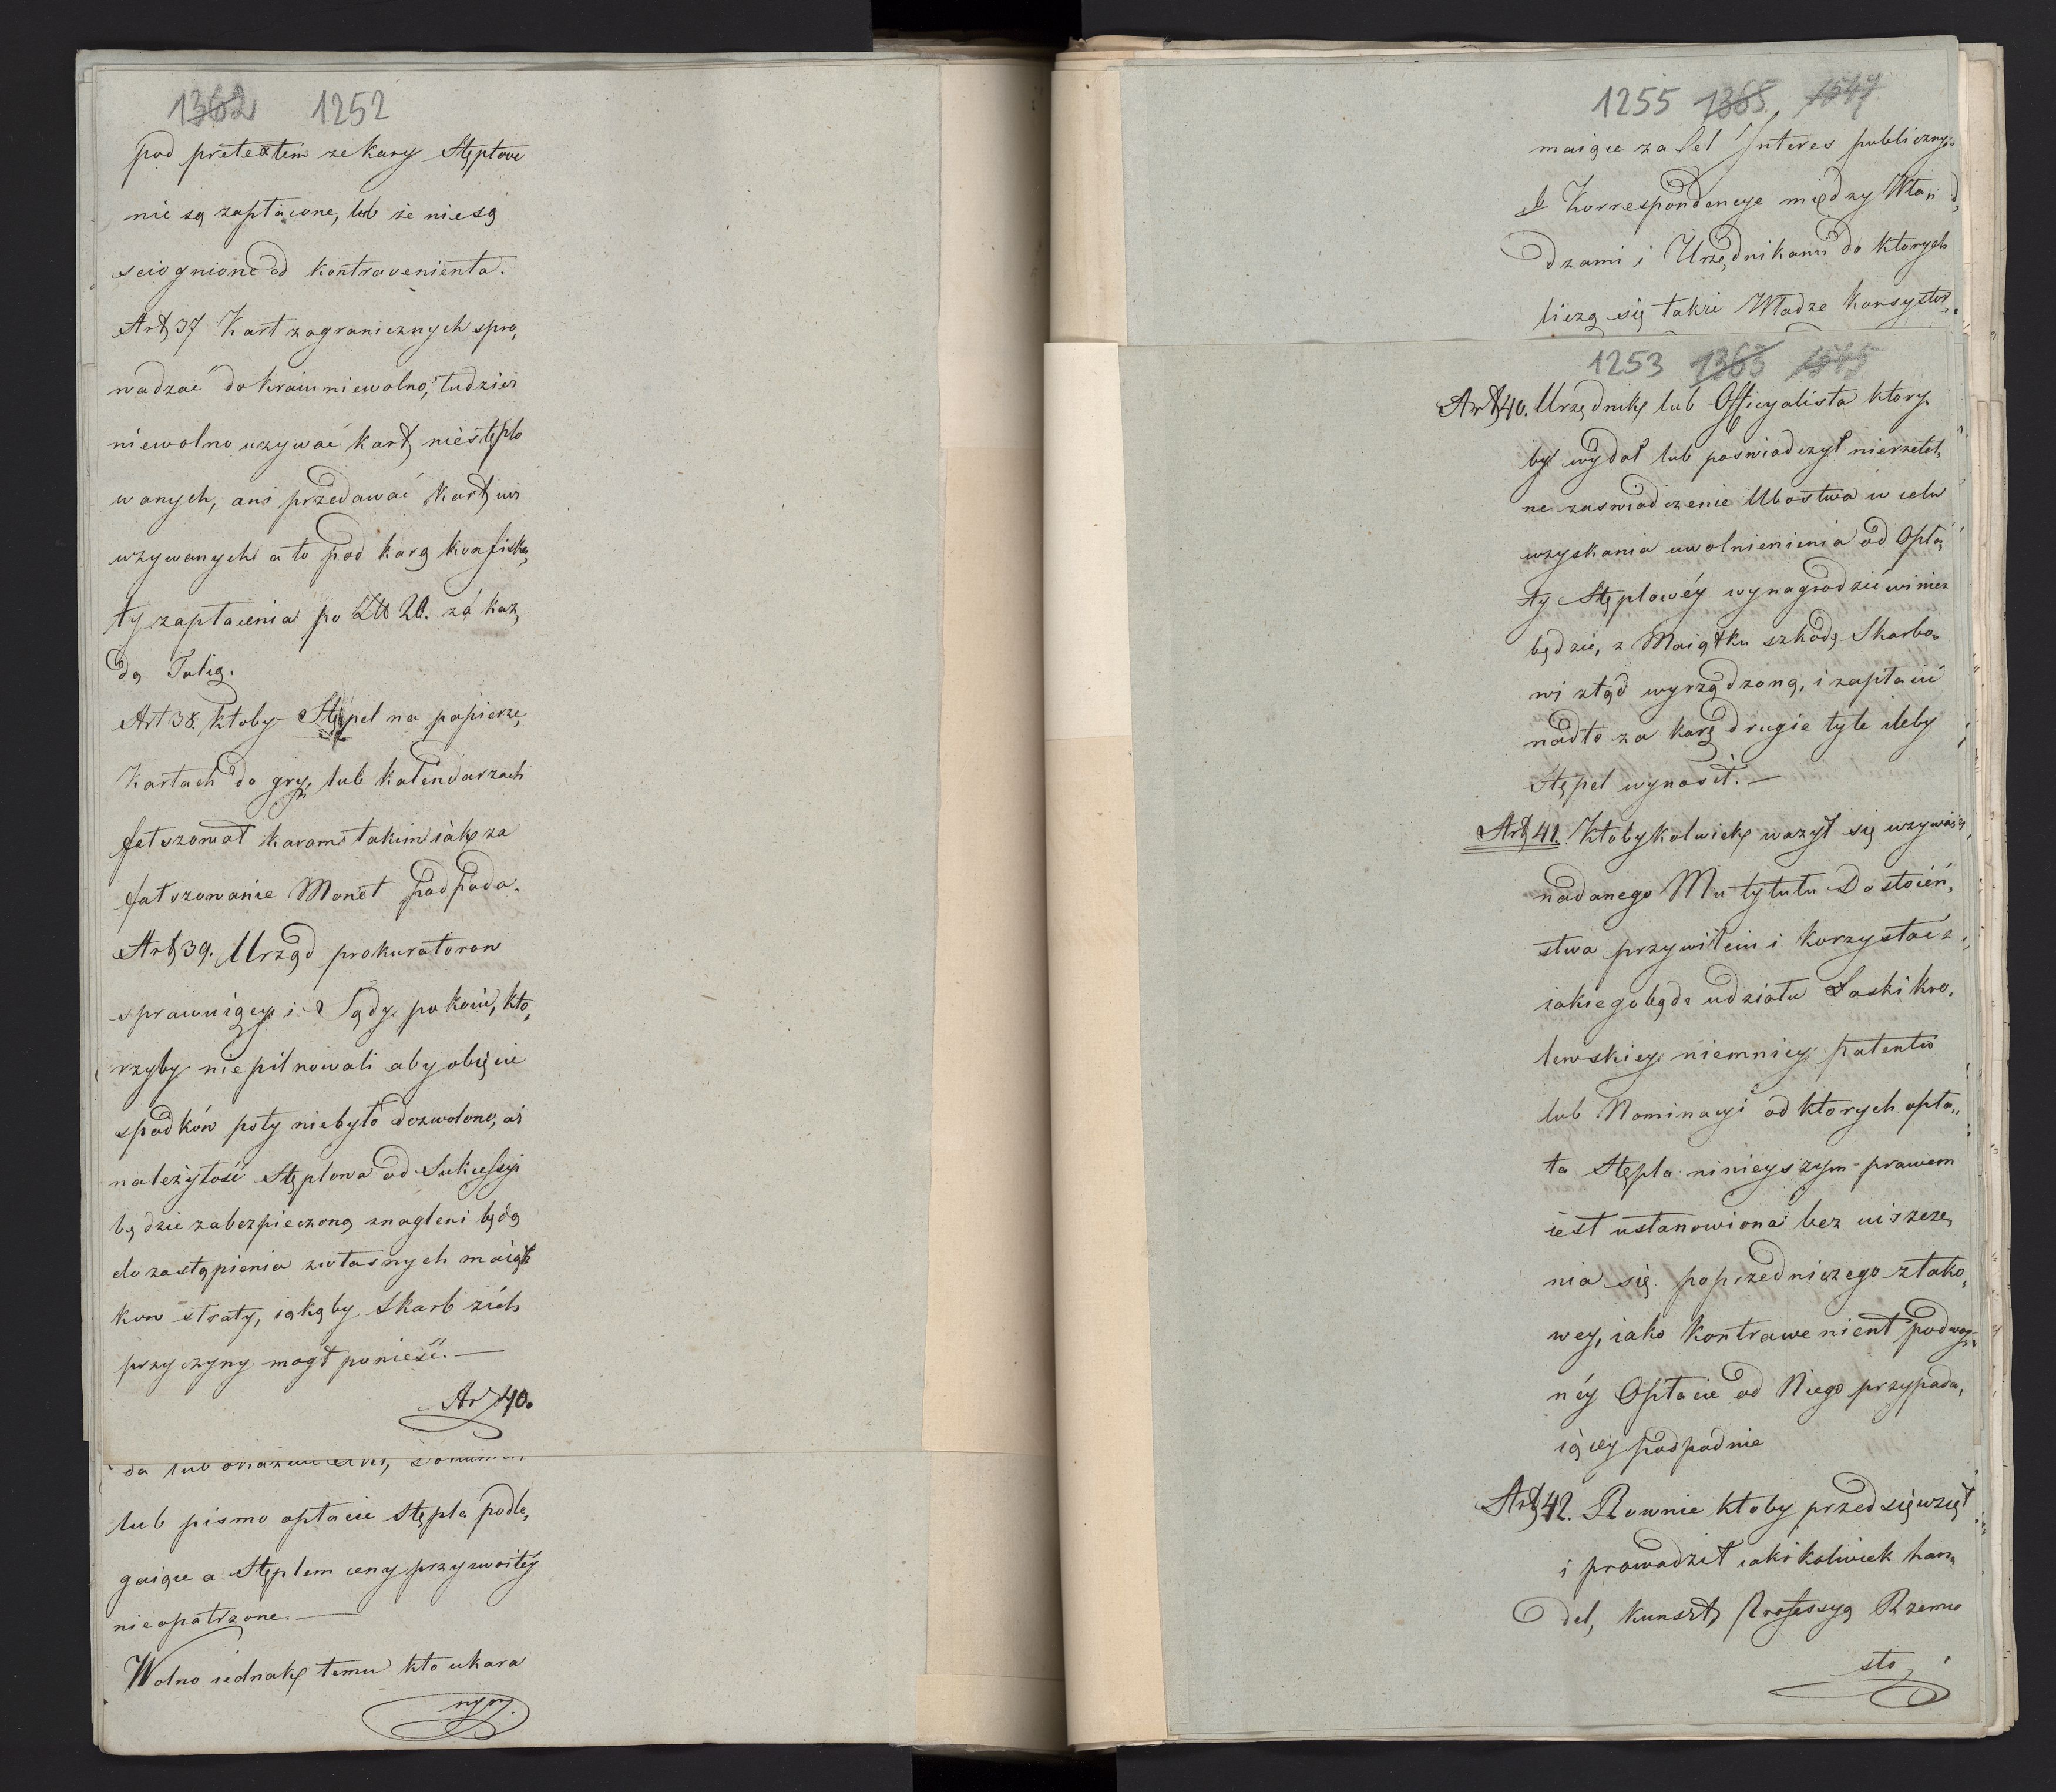 1362 1252
pod pretextem ze kary Stęplowe
nie są zapłacone, lub że niesą
sciognione od kontravenienta.
Art 37 Kart zagranicznych spro,
wadzać do kraiu niewolno, tudzież
niewolno uzywać kart niestęplo
wanych, ani przedawać kart iuż
uzywanych a to pod karą konfiska,
ty zapłacenia po Zł 20. za każ,
dą Talią.
Art 38. ktoby Stępel na papierze,
Kartach do gry, lub kalendarzach
fałszował karom takim iak za
fałszowanie Monet podpada.
Art 39. Urząd prokuratorow
sprawuiący i Sądy pokoiu, kto,
rzyby niepilnowali aby obięcie
spadków poty niebyło dozwolone, aż
należytość Stęplowa od Sukcessyi
będzie zabezpieczoną znagleni będą
do zastąpienia z własnych maiąt
kow straty, iakąby Skarb z ich
przyczyny mogł ponieść.—
Art 40.
lub pismo opłacie Stępla podle,
gaiące a Stęplem ceny przyzwoitéy
nieopatrzone.—
Wolno iednak temu kto ukara
nym
1255 1365 1547
maiące za Cel Interes publiczny
b Korrespondencye między Wła
dzami i Urzędnikami do ktorych
liczą się także Władze Konsystor
1253 1363 1545
Art 40. Urzędnik lub Officyalista ktory
by wydał lub poswiadczył nierzetel,
ne zaswiadczenie Ubostwa w celu
uzyskania uwolnienienia od Opła
ty Stęplowéy wynagrodzić winien
będzie, z Maiątku szkodę Skarbo
wi ztąd wyrządzoną, i zapłacić
nadto za karę drugie tyle ileby
Stępel wynosił.—
Art 41. Ktobykolwiek ważył się uzywać
nadanego Mu tytułu Dostoień,
stwa przywileiu i korzystać z
iakiegobądź udziału Łaski kro,
lewskiey niemniey patentu
lub Nominacyi od ktorych opła,,
ta Stępla ninieyszym prawem
iest ustanowiona bez uiszcze,
nia się poprzedniczego ztako,
wey, iako Kontrawenient podwoy
néy Opłacie od Niego przypada,
iącey podpadnie
Art 42. Rownie ktoby przedsięwziął
i prowadził iakikolwiek han
del, kunszt, Professyą Rzemio
sło